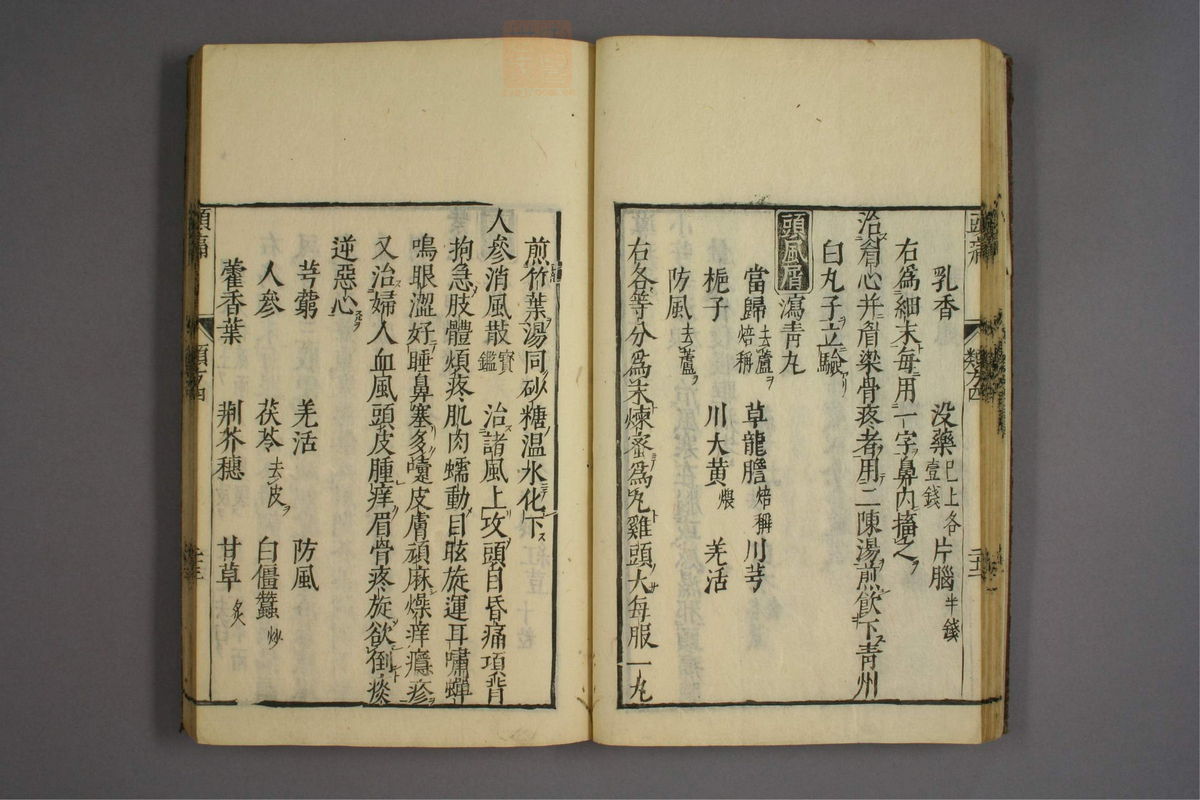 乳香　没藥已上各壹錢　片腦半錢
右爲細末每用一字鼻內搐之
治眉心并眉梁骨疼者用二陳湯煎飲下青州
白丸子立驗
頭風屑　瀉青丸
當歸去蘆焙稱　草龍膽焙稱　川芎
梔子　川大黃煨　羌活
防風去蘆
右各等分爲末煉蜜爲丸雞頭大每服一丸
煎竹葉湯同砂糖温水化下
人參消風散寶鑑　治諸風上攻頭目昏痛項背
拘急肢體煩疼肌肉蠕動目眩旋運耳嘯蟬
鳴眼澀好睡鼻塞多嚔皮膚頑麻燥痒癮疹
又治婦人血風頭皮腫痒眉骨疼旋欲倒痰
逆惡心
芎藭　羌活　防風
人參　茯苓去皮　白僵蠶炒
藿香葉　荆芥穗　甘草炙
頭痛　類方四